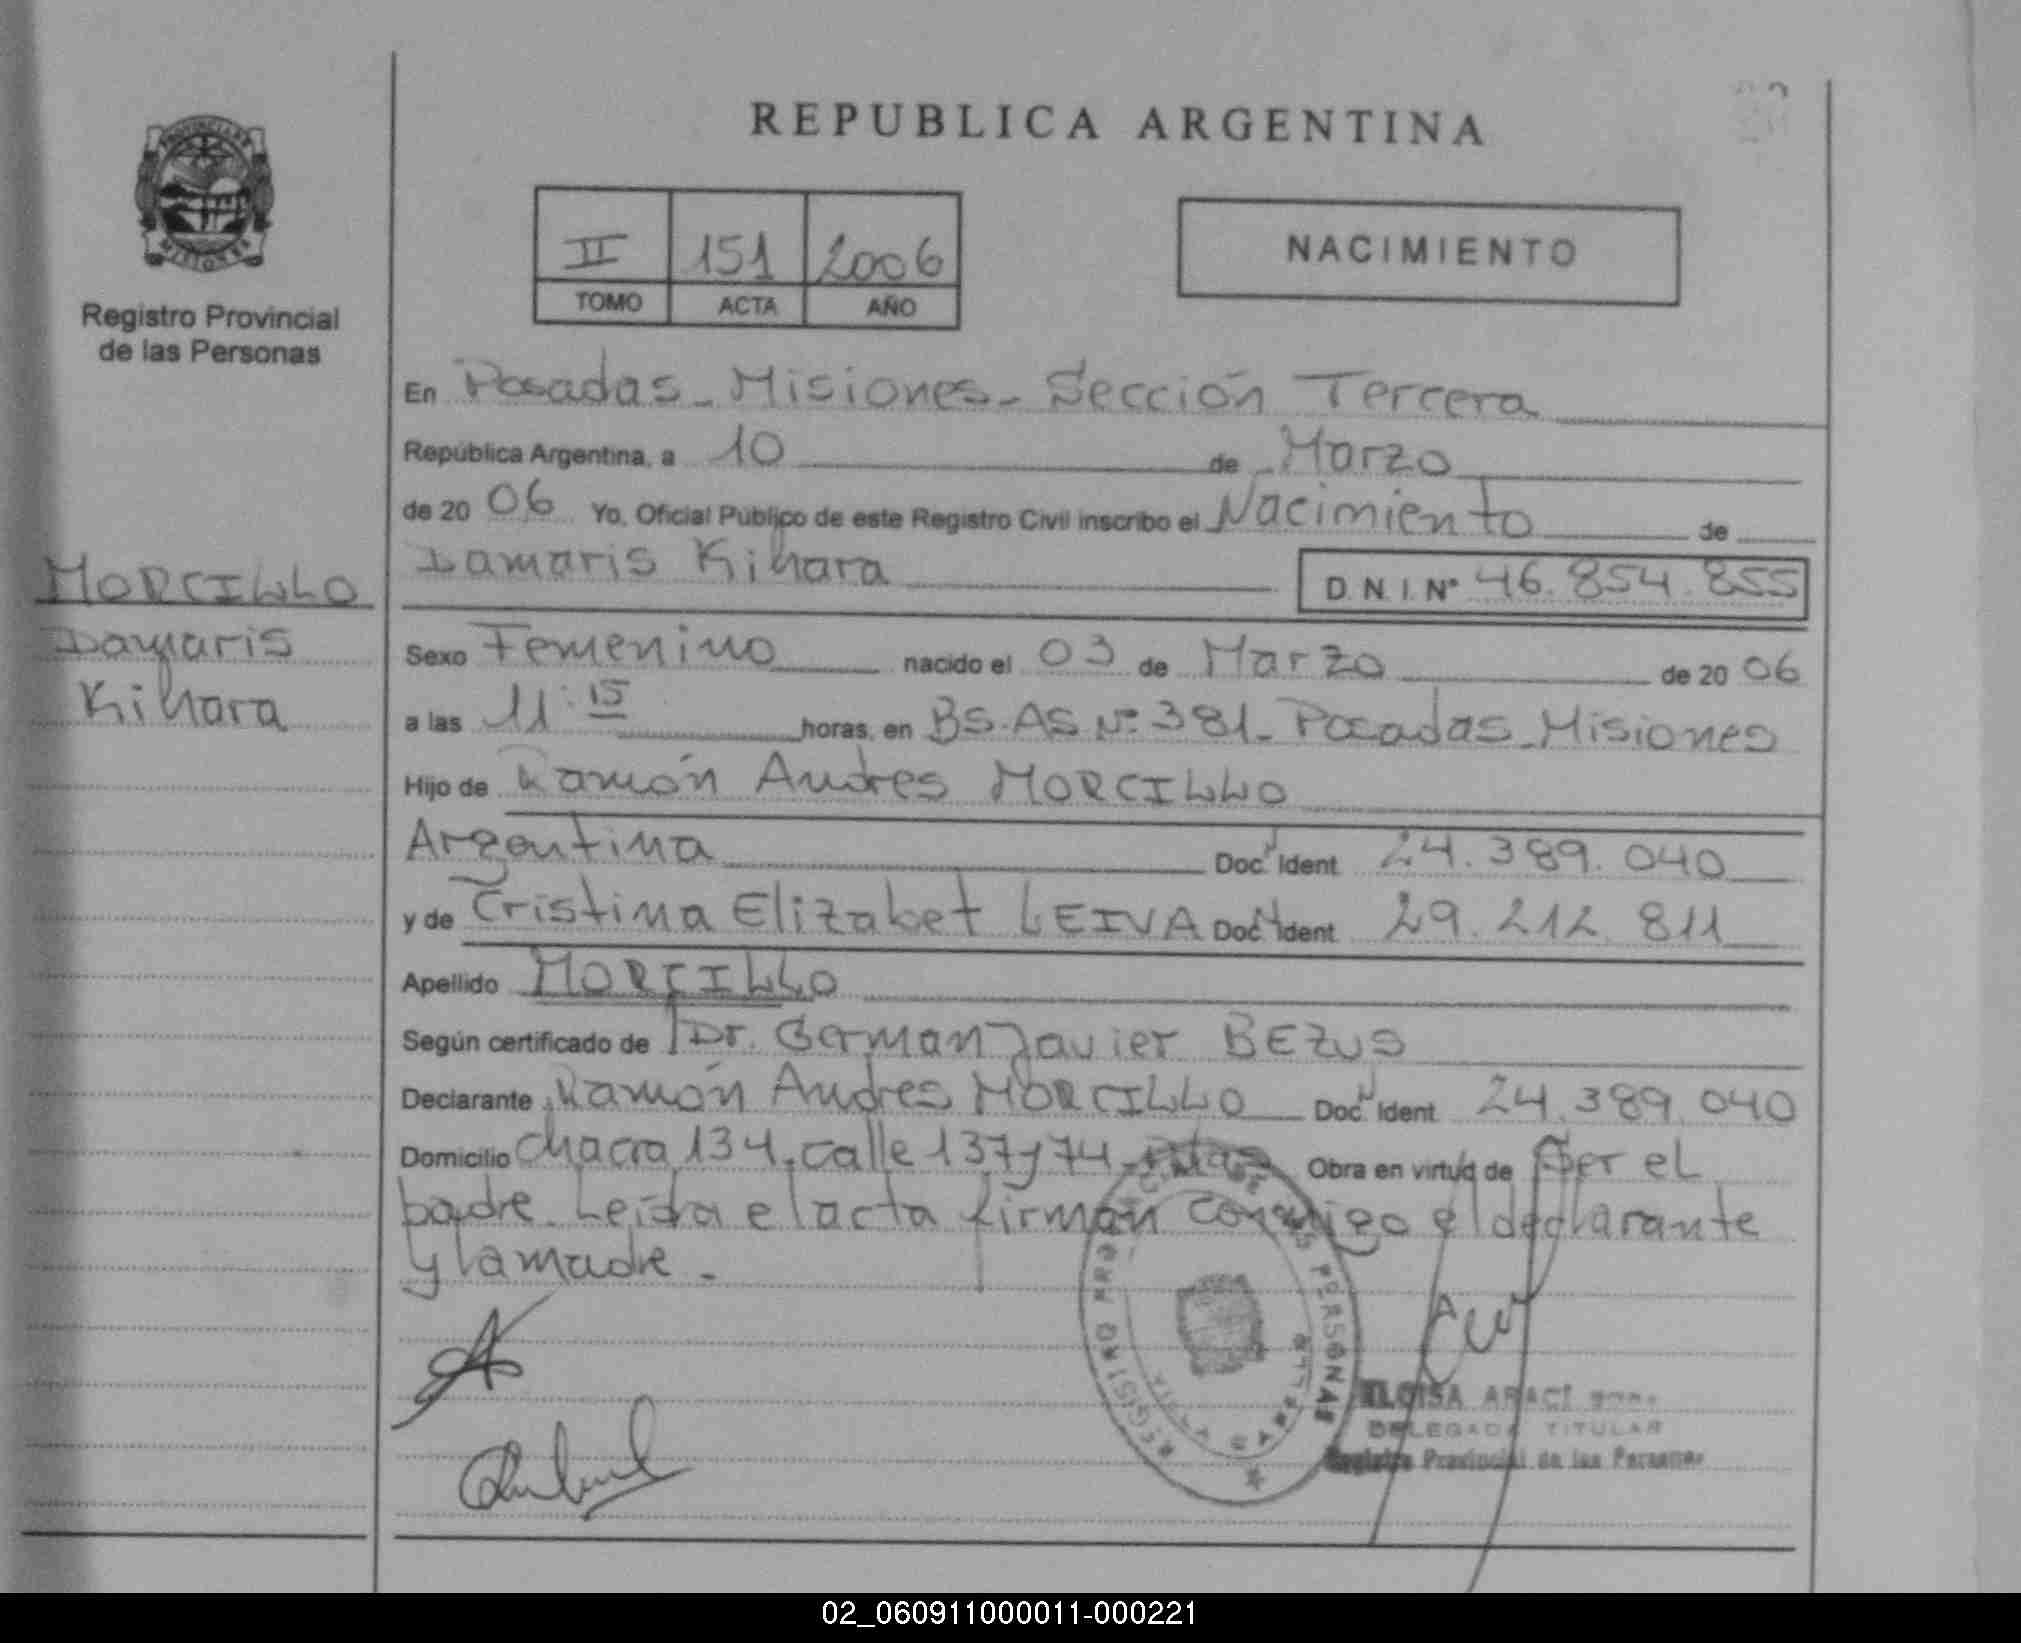 REPUBLICA ARGENTINA
PROVINCIA DE
MISIONES
Registro Provincial
de las Personas
II 151 2006
TOMO ACTA AÑO
NACIMIENTO
En Posadas - Misiones - Sección Tercera
República Argentina, a 10 de Marzo
de 20 06 Yo, Oficial Publico de este Registro Civil inscribo el Nacimiento de
Damaris Kihara D.N.I. Nº 46.854.855
MORCILLO
Damaris
Kihara
Sexo Femenino nacido el 03 de Marzo de 20 06
a las 11:15 horas, en BS.AS Nº 381 - Posadas - Misiones
Hijo de Ramón Andres MORCILLO
Argentina Doc. Ident 24.389.040
y de Cristina Elizabet LEIVA Doc. Ident. 29.212.811
Apellido MORCILLO
Según certificado de Dr. German Javier BEZUS
Declarante Ramón Andres MORCILLO Doc. Ident. 24.389.040
Domicilio Chacra 134, calle 137 y 74 Obra en virtud de Ser el
padre. Leída el acta firman conmigo el declarante
y la madre.
REGISTRO PROVINCIAL DE LAS PERSONAS
ELOISA ARACI
DELEGADA TITULAR
Registro Provincial de las Personas
02_060911000011-000221